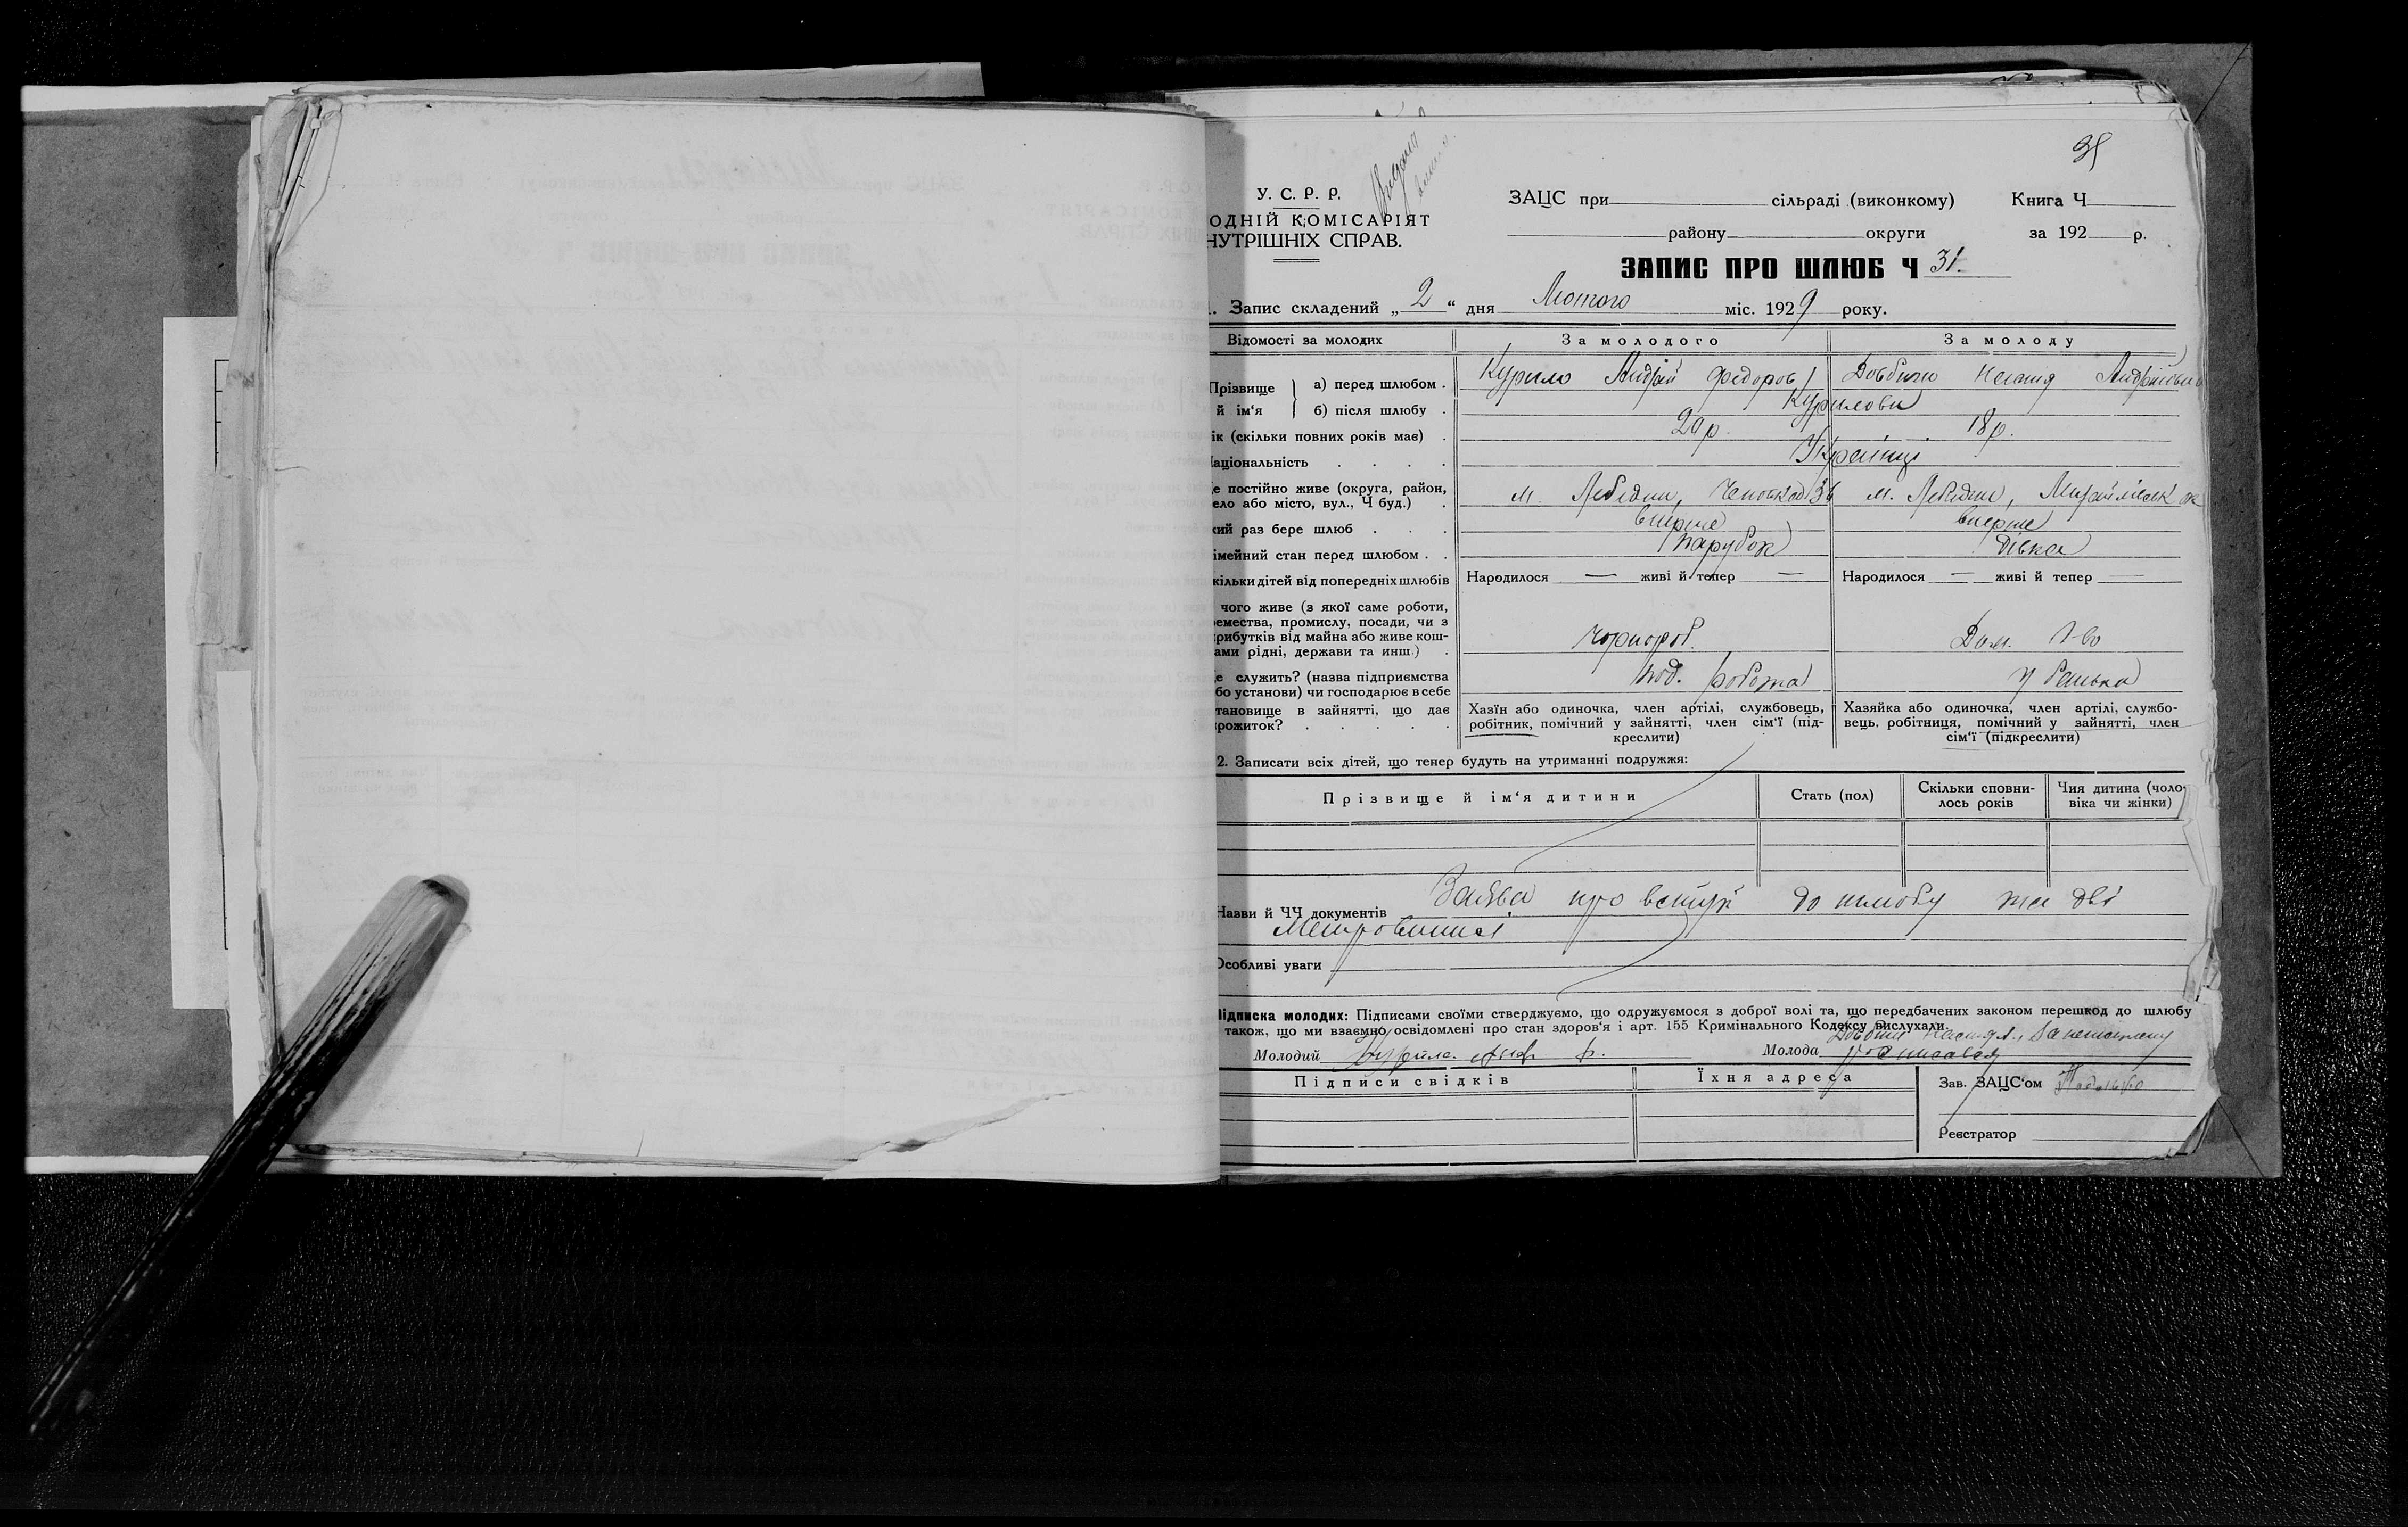 35
Видана
У. С. Р. Р.
ОДНІЙ КОМІСАРІЯТ
НУТРІШНІХ СПРАВ.
ЗАЦС при сільраді (виконкому) Книга Ч
району округи за 192 р.
ЗАПИС ПРО ШЛЮБ Ч 31.
1. Запис складений „ 2 “ дня Лютого міс. 1929 року.
Відомості за молодих За молодого За молоду
Прізвище й ім‘я а) перед шлюбом . Курило Андрій Федоров Довбня Андріївна
б) після шлюбу . Курилови
ік (скільки повних років має) . 20 р. 18 р.
аціональність . . . . Українці
е постійно живе (округа, район, ело або місто, вул., Ч буд.) . м. Лебедин, 36 м. Лебедин,
кий раз бере шлюб . . . вперше вперше
імейний стан перед шлюбом . . парубок дівка
кільки дітей від попередніх шлюбів Народилося — живі й тепер — Народилося — живі й тепер —
чого живе (з якої саме роботи,
емества, промислу, посади, чи з
рибутків від майна або живе кош-
ами рідні, держави та инш.) . Чорнороб. Дом. г-во
е служить? (назва підприємства
бо установи) чи господарює в себе под. робота у батька
тановище в зайнятті, що дає
рожиток? . . . . .
Хазїн або одиночка, член артілі, службовець,
робітник, помічний у зайнятті, член сім‘ї (під-
креслити)
Хазяйка або одиночка, член артілі, службо-
вець, робітниця, помічний у зайнятті, член
сім‘ї (підкреслити)
2. Записати всіх дітей, що тепер будуть на утриманні подружжя:
Прізвище й ім‘я дитини Стать (пол) Скільки сповни-
лось років Чия дитина (чоло-
віка чи жінки)
Назви й ЧЧ документів Заява про вступ до шлюбу та дві
Метровиписі
Особливі уваги
Підписка молодих: Підписами своїми стверджуємо, що одружуємося з доброї волі та, що передбачених законом перешкод до шлюбу
також, що ми взаємно освідомлені про стан здоров‘я і арт. 155 Кримінального Кодексу вислухали.
Молодий Курило Молода Довбня за неписьмену
росписався
Підписи свідків Їхня адреса Зав. ЗАЦС‘ом
Реєстратор